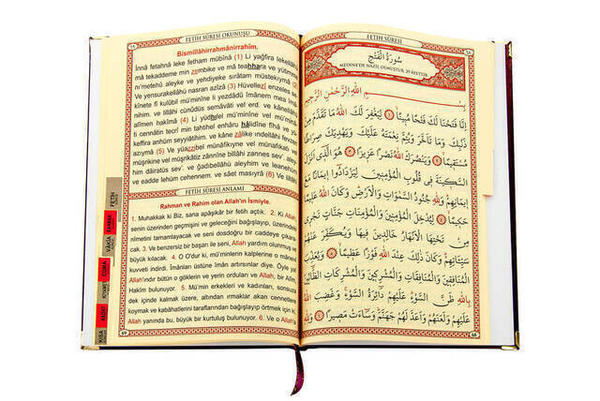 FETİH SÛRESİ OKUNUŞU
Bismillâhirrahmânirrahîm.
İnnâ fetahnâ leke fetham mübînâ (1) Li yağfira lekellâhü
mâ tekaddeme min zembike ve mâ teahhara ve yütimme
ni'metehû aleyke ve yehdiyeke sırâtam müstekıymâ (2)
Ve yensurakellâhü nasran azîzâ (3) Hüvellezî enzeles se
kînete fî kulûbil mü'minîne li yezdâdû îmânem mea îmâni
him. ve lillâhi cünûdüs semâvâti vel erd. ve kânellâhü
alîmen hakîmâ (4) Li yüdhilel mü'minîne vel mü'minâ
ti cennâtin tecrî min tahtihel enhâru hâlidîne fîhâ ve yü
keffira anhüm seyyiâtihim. ve kâne zâlike ındellâhi fevzen
azîymâ (5) Ve yüazzibel münâfikıyne vel münâfikati vel
müşrikîne vel müşrikâtiz zânnîne billâhi zannes sev'. aleyhim
dâiratüs sev'. ve ğadıbellâhü aleyhim ve leanehüm
ve eadde lehüm cehennem. ve sâet masıyrâ (6) Ve lillâhi
FETİH SÛRESİ ANLAMI
Rahman ve Rahim olan Allah'ın İsmiyle.
1. Muhakkak ki Biz, sana apâşikâr bir fetih açtık. 2. Ki Allah,
senin üzerinden geçmişini ve geleceğini bağışlayıp, üzerindeki
nîmetini tamamlayacak ve seni dosdoğru bir caddeye çıkara
cak. 3. Ve benzersiz bir başarı ile seni, Allah yardım olunmuş ve
büyük kılacak. 4. O O'dur ki, mü'minlerin kalplerine o mânevî
kuvveti indirdi. İmânları üstüne îmân artırsınlar diye. Öyle ya!
Allah'ındır bütün o göklerin ve yerin orduları ve Allah, bir Alîm,
Hakîm bulunuyor. 5. Mü'min erkekleri ve kadınları, sonsuza
dek içinde kalmak üzere, altından ırmaklar akan cennetlere
koymak ve kabâhatlerini taraflarından bağışlayıp örtmek için ki,
Allah yanında bu, büyük bir kurtuluş bulunuyor. 6. Ve o Allah'a
FETİH
VÂKIA
CUMA
KIYAME
KISA
FETİH SÛRESİ
سُورَةُ الْفَتْحِ
MEDİNE'DE NÂZİL OLMUŞTUR, 29 ÂYETTİR.
بِسْمِ اللّٰهِ الرَّحْمٰنِ الرَّحِيمِ
اِنَّا فَتَحْنَا لَكَ فَتْحًا مُبِينًا ١ لِيَغْفِرَ لَكَ اللّٰهُ مَا تَقَدَّمَ مِنْ
ذَنْبِكَ وَمَا تَاَخَّرَ وَيُتِمَّ نِعْمَتَهُ عَلَيْكَ وَيَهْدِيَكَ صِرَاطًا
مُسْتَقِيمًا ٢ وَيَنْصُرَكَ اللّٰهُ نَصْرًا عَزِيزًا ٣ هُوَ الَّذِي اَنْزَلَ
السَّكِينَةَ فِي قُلُوبِ الْمُؤْمِنِينَ لِيَزْدَادُوا اِيمَانًا مَعَ
اِيمَانِهِمْ وَلِلّٰهِ جُنُودُ السَّمٰوَاتِ وَالْاَرْضِ وَكَانَ اللّٰهُ عَلِيمًا
حَكِيمًا ٤ لِيُدْخِلَ الْمُؤْمِنِينَ وَالْمُؤْمِنَاتِ جَنَّاتٍ تَجْرِي
مِنْ تَحْتِهَا الْاَنْهَارُ خَالِدِينَ فِيهَا وَيُكَفِّرَ عَنْهُمْ
سَيِّـَٔاتِهِمْ وَكَانَ ذٰلِكَ عِنْدَ اللّٰهِ فَوْزًا عَظِيمًا ٥ وَيُعَذِّبَ
الْمُنَافِقِينَ وَالْمُنَافِقَاتِ وَالْمُشْرِكِينَ وَالْمُشْرِكَاتِ الظَّانِّينَ
بِاللّٰهِ ظَنَّ السَّوْءِ عَلَيْهِمْ دَائِرَةُ السَّوْءِ وَغَضِبَ اللّٰهُ
عَلَيْهِمْ وَلَعَنَهُمْ وَاَعَدَّ لَهُمْ جَهَنَّمَ وَسَاءَتْ مَصِيرًا ٦ وَلِلّٰهِ